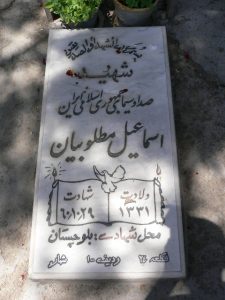 شهید
صدا و سیمای جمهوری اسلامی ایران
اسماعیل مطلوبیان
ولادت شهادت
۱۳۳۱ ۶۰،۱۰،۲۹
محل شهادت: بلوچستان
قطعه ۲۴ ردیف ۱۰ شماره